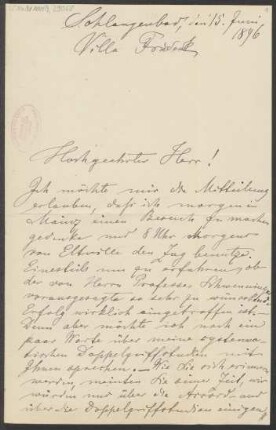 Schlangenbad, den 15. Juni,
1896
Villa
Hochgeehrter Herr!
Ich möchte mir die Mitteilung
erlauben, daß ich morgen in
Mainz einen Besuch zu machen
gedenke und 8 Uhr Morgens
von Eltville den Zug benutze.
Einesteils um zu erfahren, ob
der von Herrn Professor
vorausgesagte so sehr zu wünschende
Erfolg wirklich eingetroffen ist.
Dann aber möchte ich noch ein
paar Worte über meine systema-
tischen Doppelgriffstudien mit
Ihnen sprechen. Wie Sie sich erinnern
werden, meinten Sie seiner Zeit, wir
würden nur über die Accorde und
über die Doppelgriffstudien einigen,